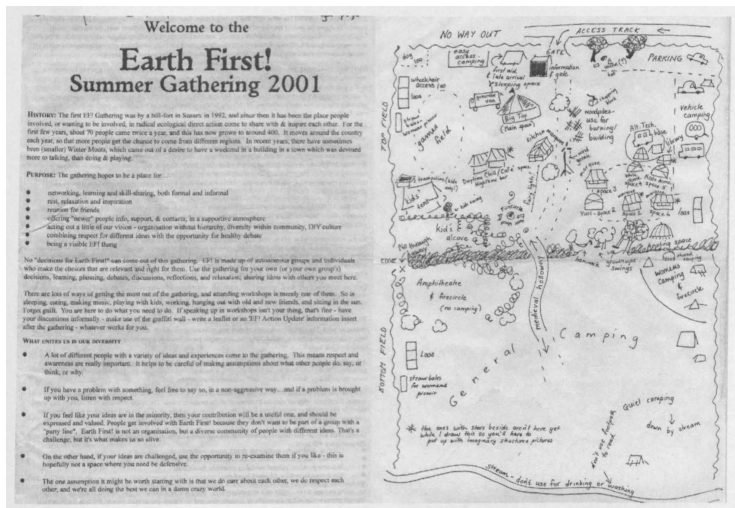 Welcome to the
Earth First!
Summer Gathering 2001
HISTORY: The first EF! Gathering was by a hill-fort in Sussex in 1992, and since then it has been the place people
involved, or wanting to be involved, in radical ecological direct action come to share with & inspire each other. For the
first few years, about 70 people came twice a year, and this has now grown to around 400. It moves around the country
each year, so that more people get the chance to come from different regions. In recent years, there have sometimes
been (smaller) Winter Moots, which came out of a desire to have a weekend in a building in a town which was devoted
more to talking, than doing & playing.
PURPOSE: The gathering hopes to be a place for…
networking, learning and skill-sharing, both formal and informal
rest, relaxation and inspiration
reunion for friends
offering "newer" people info, support, & contacts, in a supportive atmosphere
acting out a little of our vision - organisation without hierarchy, diversity within community, DIY culture
combining respect for different ideas with the opportunity for healthy debate
being a visible EF! thing
No "decisions for Earth First!" can come out of this gathering. EF! is made up of autonomous groups and individuals
who make the choices that are relevant and right for them. Use the gathering for your own (or your own group's)
decisions, learning, planning, debates, discussions, reflections, and relaxation; sharing ideas with others you meet here.
There are lots of ways of getting the most out of the gathering, and attending workshops is merely one of them. So is
sleeping, eating, making music, playing with kids, working, hanging out with old and new friends, and sitting in the sun.
Forget guilt. You are here to do what you need to do. If speaking up in workshops isn't your thing, that's fine - have
your discussions informally - make use of the graffiti wall - write a leaflet or an 'EF! Action Update' information insert
after the gathering - whatever works for you.
WHAT UNITES US IS OUR DIVERSITY
A lot of different people with a variety of ideas and experiences come to the gathering. This means respect and
awareness are really important. It helps to be careful of making assumptions about what other people do, say, or
think, or why.
If you have a problem with something, feel free to say so, in a non-aggressive way…and if a problem is brought
up with you, listen with respect.
If you feel like your ideas are in the minority, then your contribution will be a useful one, and should be
expressed and valued. People get involved with Earth First! because they don't want to be part of a group with a
"party line". Earth First! is not an organisation, but a diverse community of people with different ideas. That's a
challenge, but it's what makes us so alive.
On the other hand, if your ideas are challenged, use the opportunity to re-examine them if you like - this is
hopefully not a space where you need be defensive.
The one assumption it might be worth starting with is that we do care about each other, we do respect each
other, and we're all doing the best we can in a damn crazy world.
NO WAY OUT
ACCESS TRACK
GATE
PARKING
easy
access
camping
first aid
late arrival
sleeping space
information
& gate
wheelchair
access loo
loos
Big Top
(main space)
games
field
TOP FIELD
woodpiles -
use for
burning/
building
Alt. Tech.
vehicle
camping
kitchen
kids
kid's
alcove
Yurt - space
loos
womens
camping
& firecircle
Amphitheatre
& firecircle
(no camping)
medieval holloway
General Camping
BOTTOM FIELD
Loos
straw bales
for womens
* the ones with stars beside aren't here yet
while I draw this so you'll have to
put up with imaginary structure pictures
Quiet camping
down by stream
stream - don't use for drinking or washing